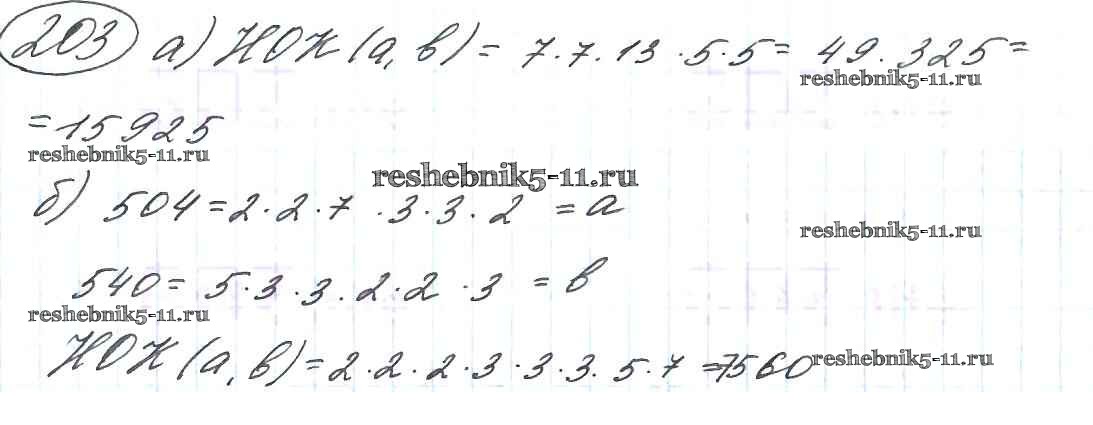 203 а) НОК (а, в) = 7·7·13·5·5 = 49·325 =
reshebnik5-11.ru
= 15925
reshebnik5-11.ru
reshebnik5-11.ru
б) 504 = 2·2·7·3·3·2 = а
reshebnik5-11.ru
540 = 5·3·3·2·2·3 = в
reshebnik5-11.ru
НОК (а, в) = 2·2·2·3·3·3·5·7 = 7560
reshebnik5-11.ru